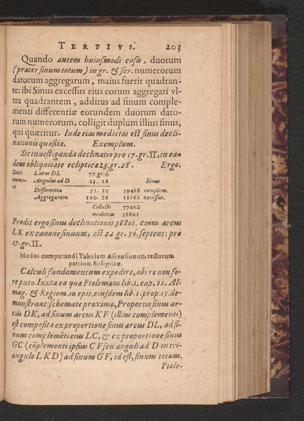 TERTIVS. 203
Quando autem huiusmodi casu, duorum
(præter sinum totum) in gr. & scr. numerorum
datorum aggregatum, maius fuerit quadran-
te: ibi Sinus excessus eius eorum aggregati vl-
tra quadrantem, additus ad sinum comple-
menti differentiæ eorundem duorum dato-
rum numerorum, colligit duplum illius sinus,
qui quæritur. Inde eius medietas est sinus decli-
nationis quæsitæ. Exemplum.
Sit inuestiganda declinatio pro 17. gr. II, in ea-
dem obliquitate eclipticæ 23. gr. 28. Ergo.
Dati Latus DL 77. gr. 0
nume- Angulus ad D 23. 28 Sinus
Differentia 53. 32 complem.
Aggregatum 100. 28 excessus.
Collecti 77602
medietas 38801
Prodit ergo sinus declinationis 38801. cuius arcus
LK ex canone sinuum, est 22 gr. 50. septent: pro
17. gr. II.
Modus computandi Tabulam Ascensionum rectarum
partium Eclipticæ.
Calculi fundamentum expedire, ab re non fo-
re puto. Iuxta ea quæ Ptolemæus lib. 1. cap. 12. Al-
mag. & Regiom. in epit. eiusdem lib. 1. prop. 15. de-
monstrant schemate proximo, Proportio sinus ar-
cus DK, ad sinum arcus KF (illius complementi)
est composita ex proportione sinus arcus DL, ad si-
num complemēti eius LC, & ex proportione sinus
GC (cōplementi ipsius CF seu anguli ad D in tri-
angulo LKD) ad sinum GF, id est, sinum totum.
Ptole-